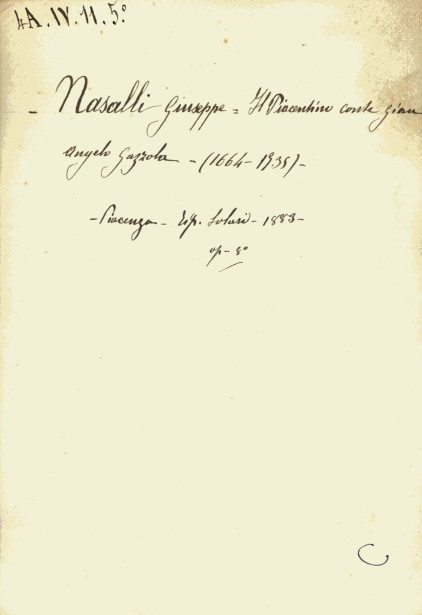 4A.IV.11.5°
- Nasalli Giuseppe = Il Piacentino conte Gian
Angelo Gazzola - (1664-1935) -
- Piacenza - Tip. Solari - 1883 -
op - 8°